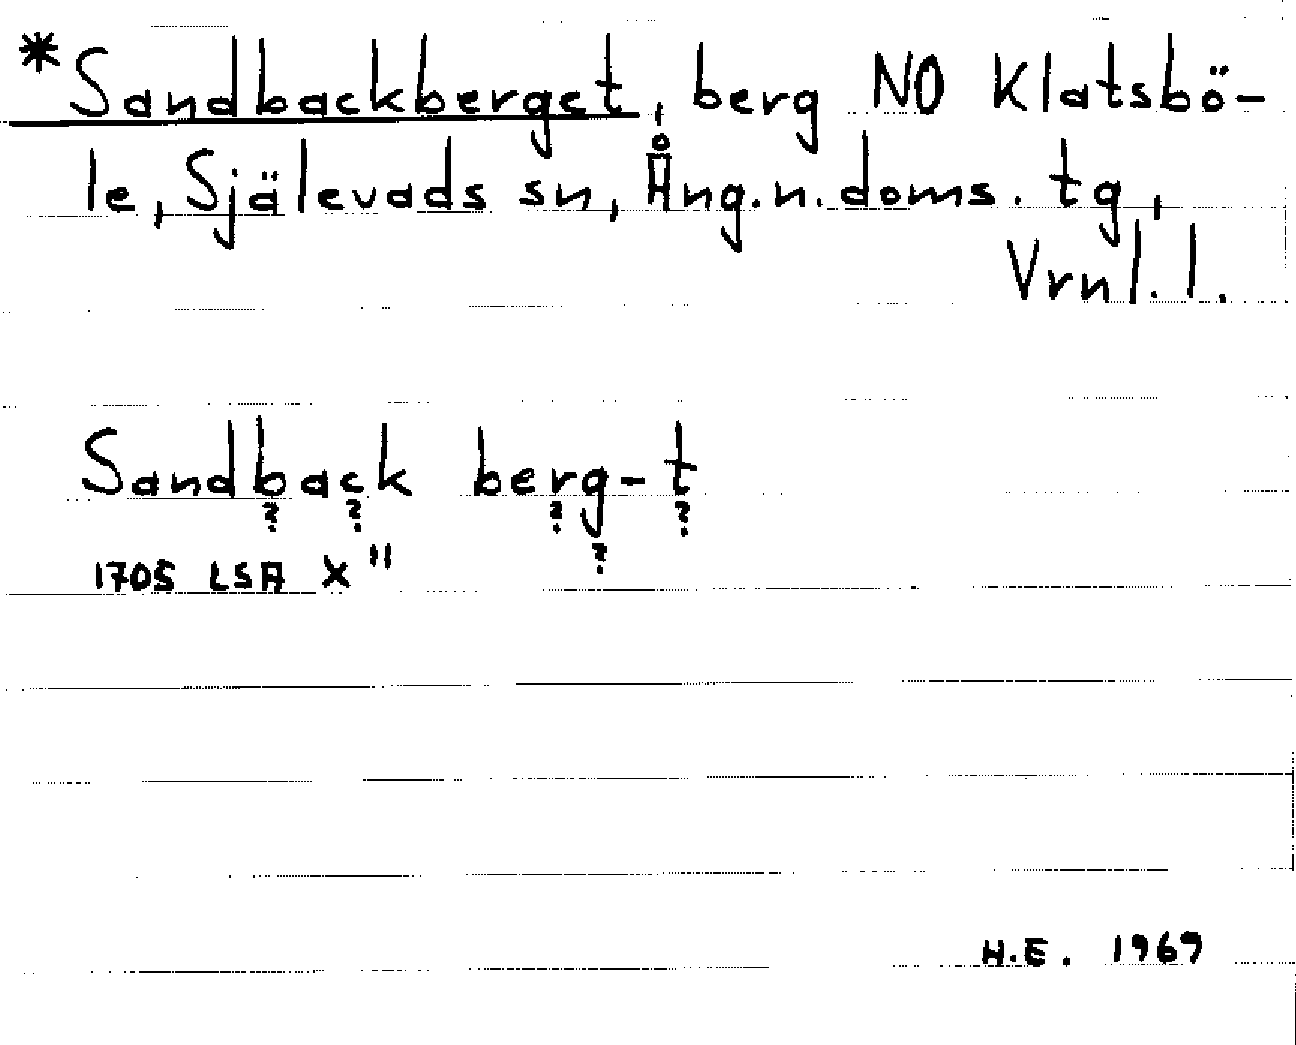 *Sandbackberget, berg NO Klatsbö-
le, Själevads sn, Ång.n.doms.tg,
Vrnl.l.
Sandback berg-t
? ? ? ? ?
1705 LSA X"
H.E. 1969